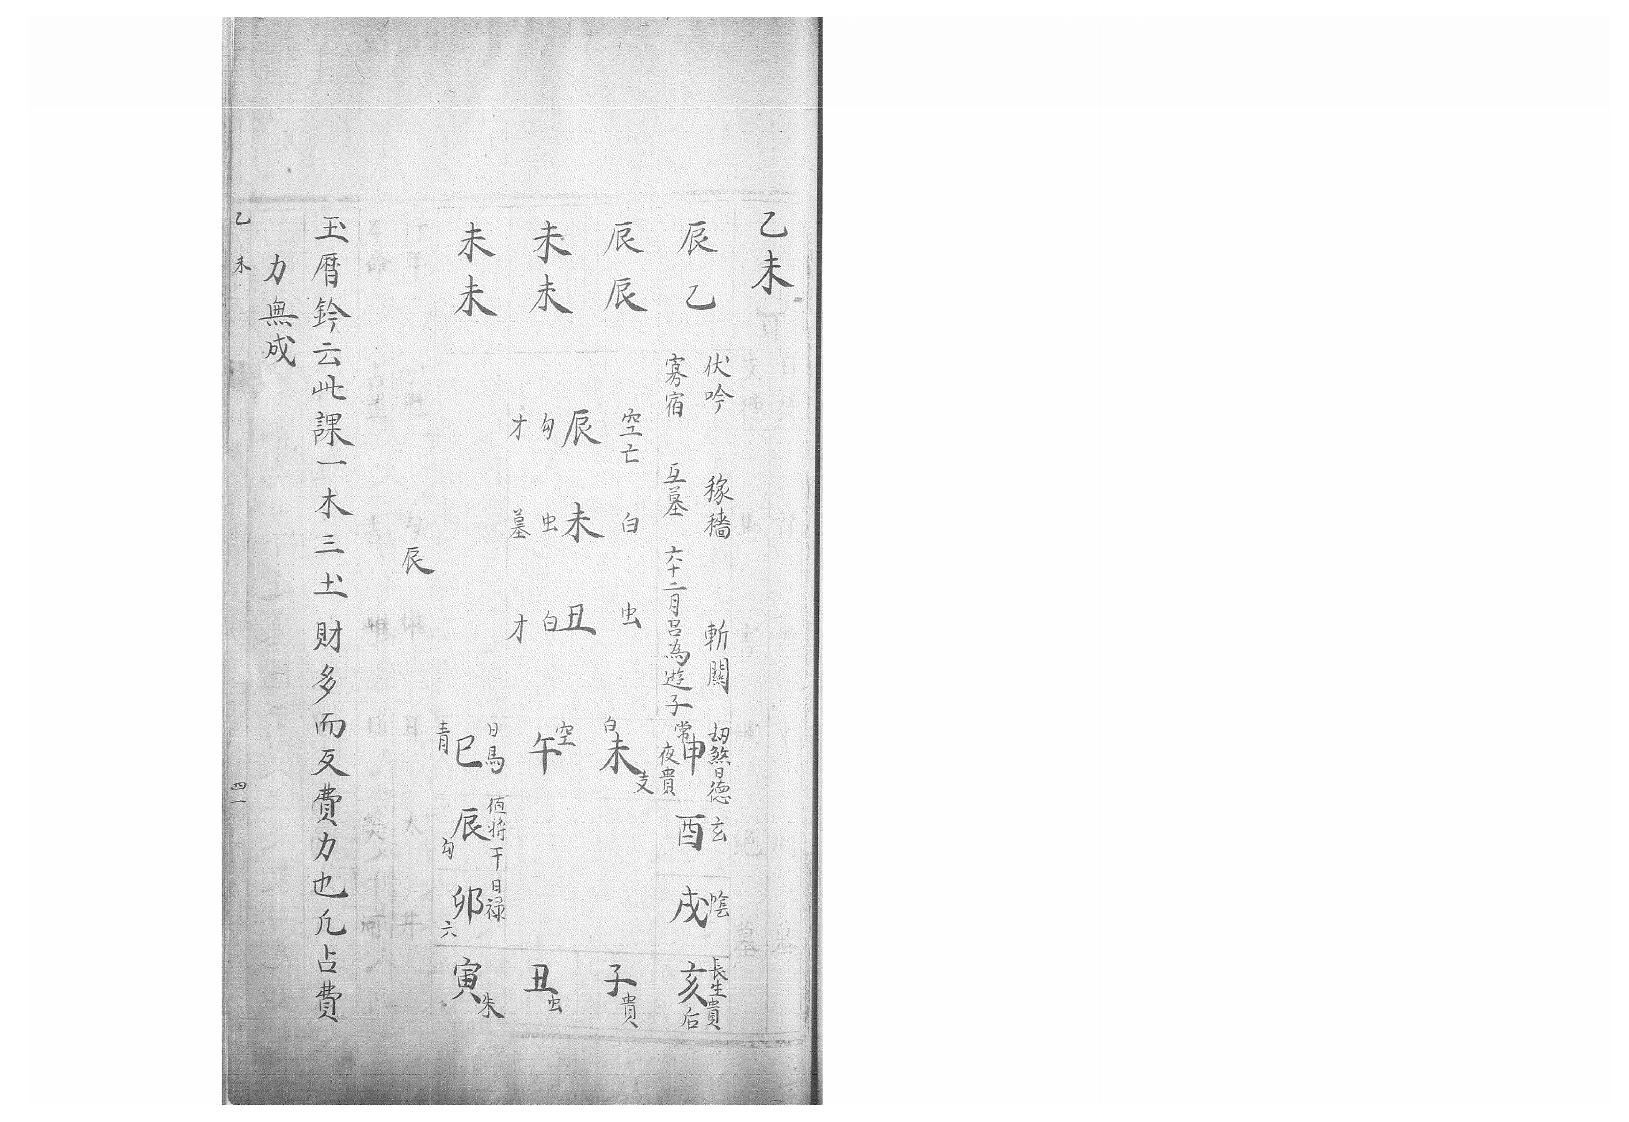 乙未
辰乙
辰辰
未未
未未
伏吟 稼穡 斬關
寡宿 互墓 六十二月呂為遊子
空亡 白 虫
辰 未 丑
勾 虫 白
才 墓 才
劫煞日德 玄 陰 長生貴
申 酉 戌 亥
常 夜貴 后
白 未 支 子 貴
空 午 丑 虫
日馬 值將干 日禄
巳 辰 卯 寅
青 勾 六 朱
辰
玉曆鈐云此課一木三土財多而反費力也凡占費
力無成
乙未
四一